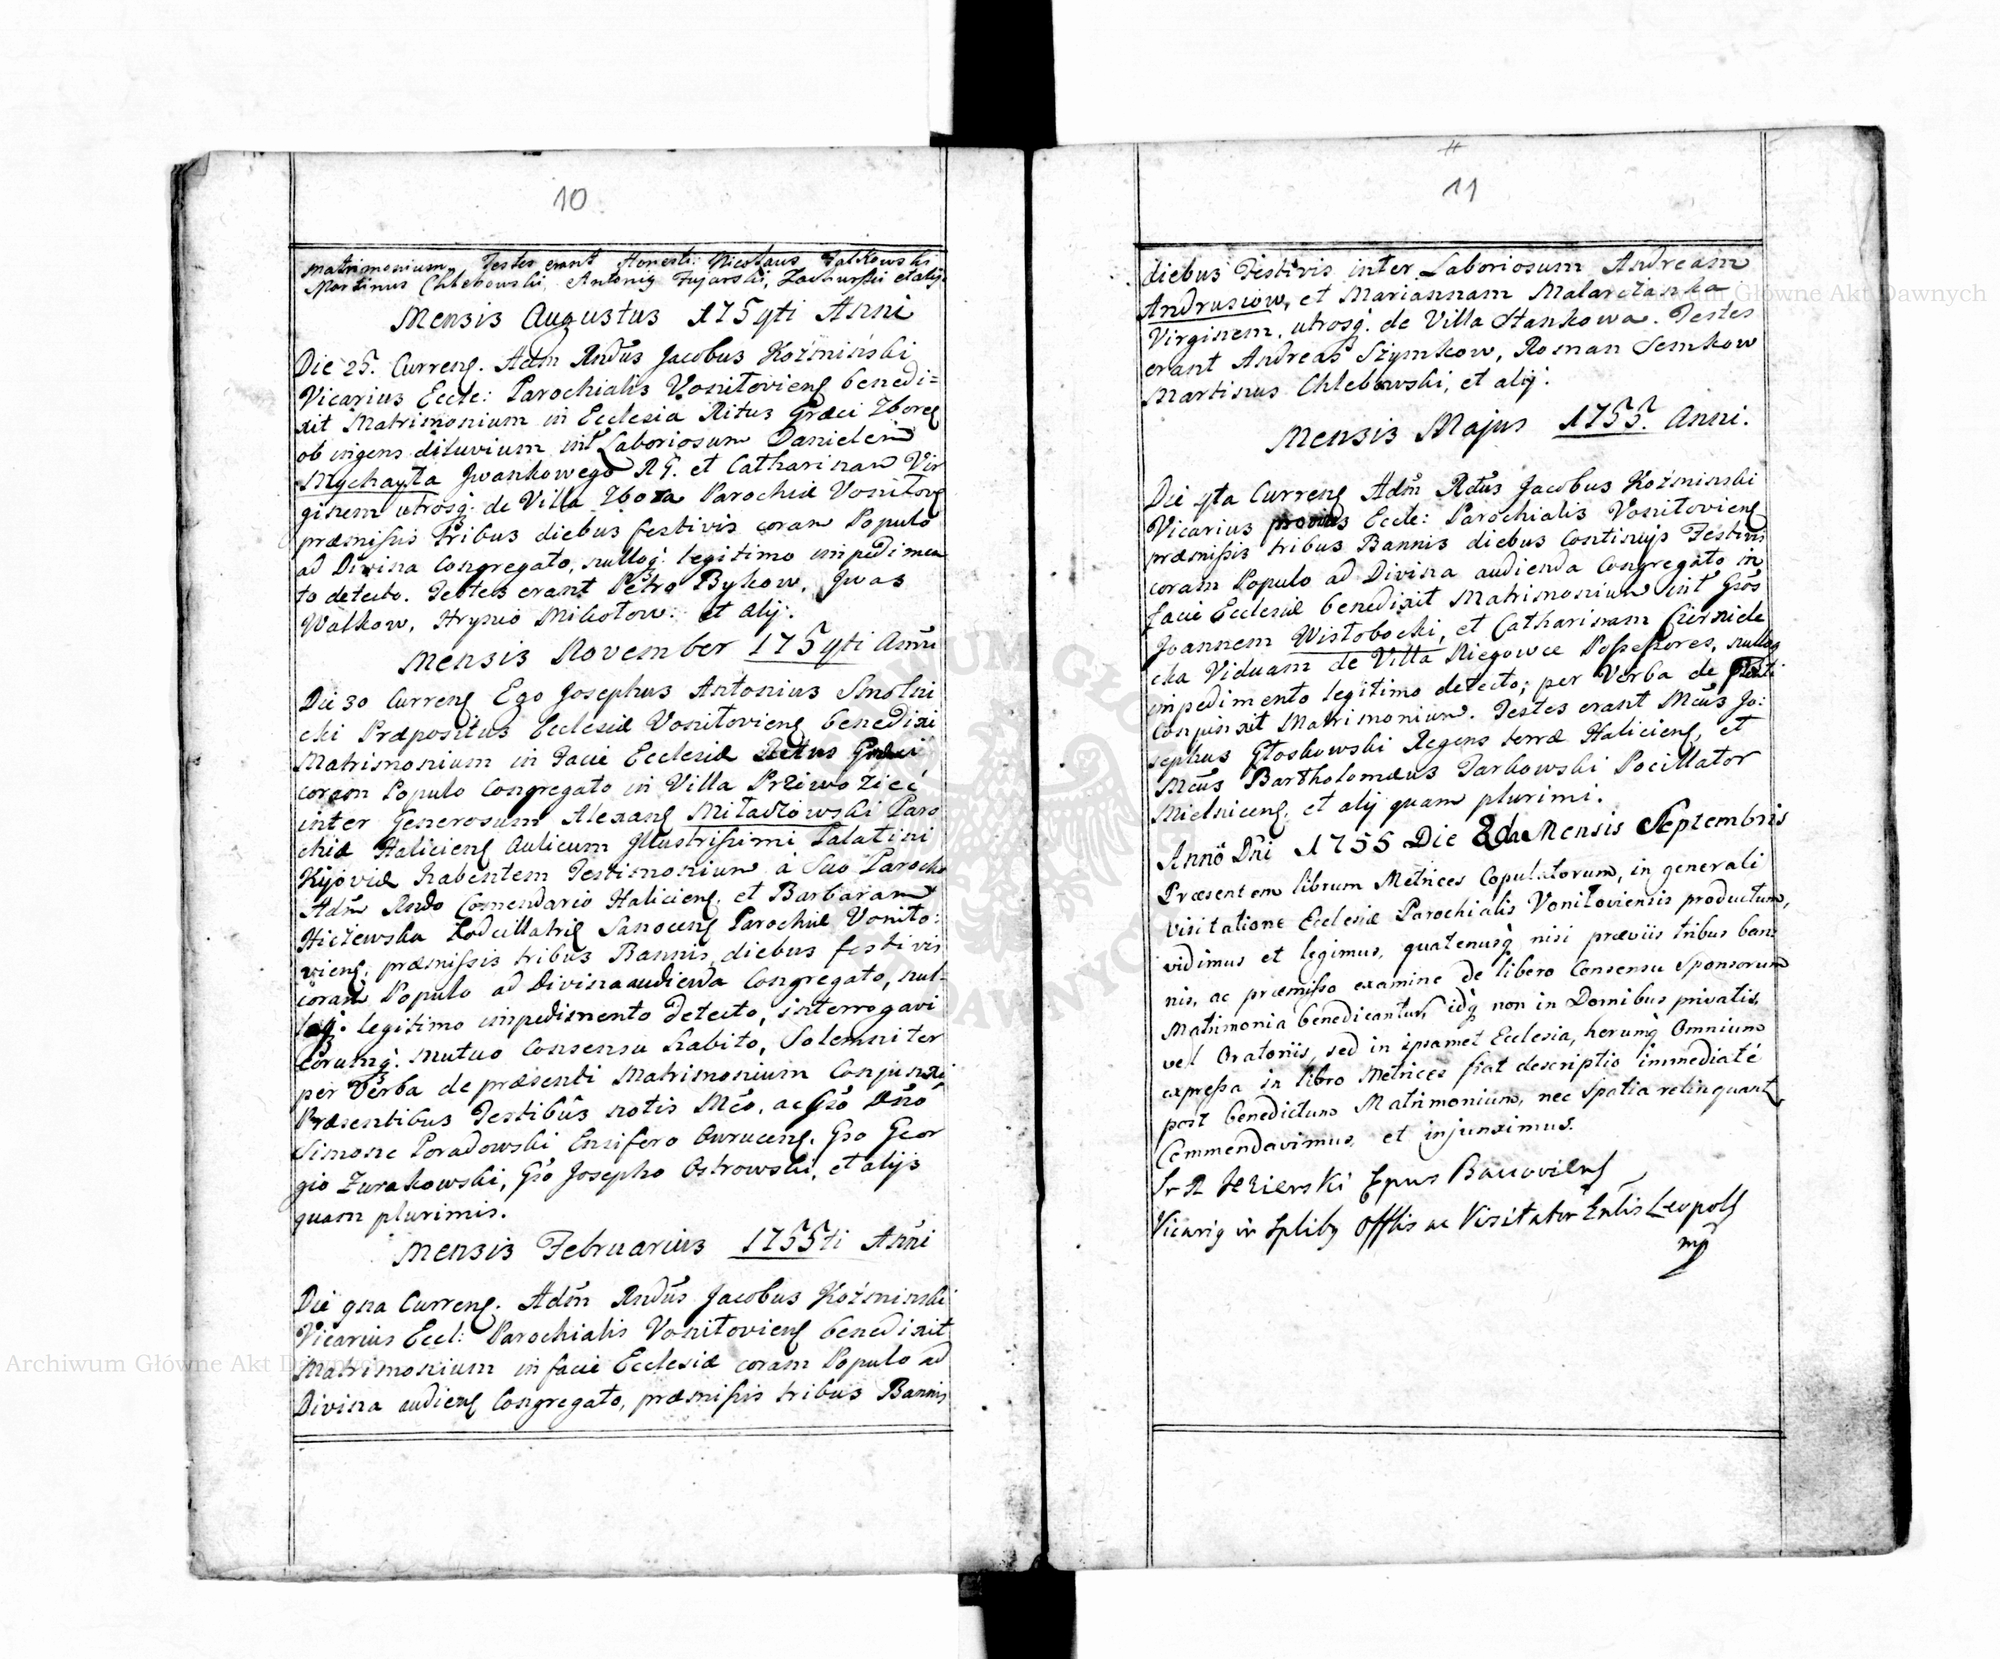 10
Matrimonium. Testes erant Honesti: Nicolaus Jalkowski
Martinus Chlebowski, Antonig Fujarski, Zachurski et alij.
Mensis Augustus 1754ti Anni
Die 25. Curreng. Adm Rndus Jacobus Koźminski
Vicarius Eccle: Parochialis Vonitovieng benedi=
xit Matrimonium in Ecclesia Ritus Græci Zboreg
ob ingens diluvium int Laboriosum Danielem
Mychayła Jwankowego RG. et Catharinam Vir
ginem utrosq: de Villa Zbora Parochiæ Vonitoveg
præmissis tribus diebus festivis coram Populo
ad Divina Congregato, nulloq: legitimo impedimen
to detecto. Testes erant Petro Bykow, Jwas
Walkow, Hrynio Mikołow: et alij:
Mensis November 1754ti Anni
Die 30 Curreng Ego Josephus Antonius Smolni
cki Præpositus Ecclesiæ Vonitovieng benedixi
Matrimonium in Facie Ecclesiæ Ritus Græci
coram Populo Congregato in Villa Przewoziec
inter Generosum Alexang Miładzowski Paro
chiæ Halicieng Aulicum Jllustrissimi Palatini
Kijoviæ habentem Testimonium à Suo Parocho
Adm Rndo Comendario Halicieng. et Barbaram
Hiczewska Sanoceng Parochiæ Vonito:
vieng: præmissis tribus Bannis, diebus festivis
coram Populo ad Divina audienda Congregato, nul-
loq: legitimo impedimento detecto, interrogavi
eorumq: mutuo Consensu habito, Solemniter
per Verba de præsenti Matrimonium Conjunxi
Præsentibus Testibus notis Mco, ac Gso Dno
Simone Poradowski Ensifero Owruceng. Gso Geor
gio Zurakowski, Gso Josepho Ostrowski, et alijs
quam plurimis.
Mensis Februarius 1755ti Anni
Die 9na Curreng. Adm Rndus Jacobus Koźminski
Vicarius Eccl: Parochialis Vonitovieng benedixit
Matrimonium in facie Ecclesiæ coram Populo ad
Divina audieng Congregato, præmissis tribus Bannis
11
diebus Festivis inter Laboriosum Andream
Andrusiow, et Mariannam Malarczanka
Virginem, utrosq: de Villa Stankowa. Testes
erant Andreas Szymkow, Roman Semkow
Martinus Chlebowski, et alij:
Mensis Majus 1755. Anni.
Die 4ta Curreng Adm Rdus Jacobus Koźminski
Vicarius Eccle: Parochialis Vonitovieng
præmissis tribus Bannis diebus Continuis Festivis
coram Populo ad Divina audienda Congregato in
facie Ecclesiæ benedixit Matrimonium int Gsos
Joannem Wisłobocki, et Catharinam Czerniele
cka Viduam de Villa Niegowce Possessores, nulloq
impedimento legitimo detecto; per Verba de Præsenti
Conjunxit Matrimonium. Testes erant Mcus Jo:
sephus Głoskowski Regens terræ Halicieng, et
Mcus Bartholomæus Jarkowski Pocillator
Mielniceng. et alij quam plurimi.
Anno Dni 1755 Die 2da Mensis Septembris
Præsentem librum Metrices Copulatorum, in generali
visitatione Ecclesiæ Parochialis Vonitoviensis productum,
vidimus et legimus, quatenusq nisi præviis tribus ban-
nis, ac præmisso examine de libero Consensu Sponsorum
Matrimonia benedicantur, idq non in Domibus privatis,
vel Oratoriis, sed in ipsamet Ecclesia, horumq Omnium
expressa in libro Metrices fiat descriptio immediaté
post benedictum Matrimonium, nec Spatia relinquant,
Commendavimus, et injunximus.
Jezierski Epus Bacovieng
Vicarig in Splibg Offlis ac Visitator Gnlis Leopolg
mp
Archiwum Główne Akt Dawnych
Archiwum Główne Akt Dawnych